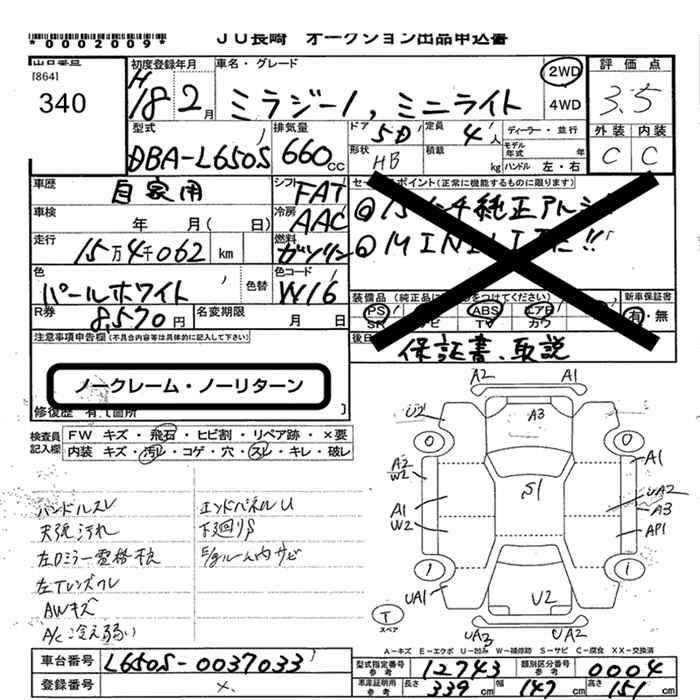 *0002009*
JU長崎 オークション出品申込書
出品番号
[864]
340
初度登録年月
H18 2月
車名・グレード
ミラジーノ,ミニライト
2WD
4WD
評価点
3.5
外装 内装
C C
型式
DBA-L650S
排気量
660cc
ドア 5D
定員 4人
形状 HB
積載 kg
ディーラー・並行
モデル年式 年
ハンドル 左・右
車歴 自家用
シフト FAT
車検 年 月( 日)
冷房 AAC
走行 15万4千062 km
燃料 ガソリン
色 パールホワイト 色替
色コード W16
R券 8,570円
名変期限 月 日
セールスポイント(正常に機能するものに限ります)
MINILITE!!
装備品
PS ABS エアB
新車保証書
有・無
保証書、取説
注意事項申告欄(不具合内容等は具体的に記入して下さい)
ノークレーム・ノーリターン
修復歴 有[箇所 ]
検査員記入欄
FW キズ・飛石・ヒビ割・リペア跡・×要
内装 キズ・汚レ・コゲ・穴・スレ・キレ・破レ
ハンドルスレ
エンドパネルU
天張汚れ
下廻りS
左Dミラー電格不良
E/gルーム内サビ
左Tレンズワレ
AWキズ
A/C冷え弱い
A2 A1
U2 A3
0 0
A2 A1
W2
S1 UA2
A1 A3
W2 AP1
1 1
UA1 U2
T
スペア
UA3 UA2
A-キズ E-エクボ U-凹み W-補修跡 S-サビ C-腐食 XX-交換済
車台番号 L650S-0037033
登録番号 ×
型式指定番号 参考 12743
類別区分番号 参考 0004
車庫証明用 参考 長さ 339cm 幅 147cm 高さ 151cm